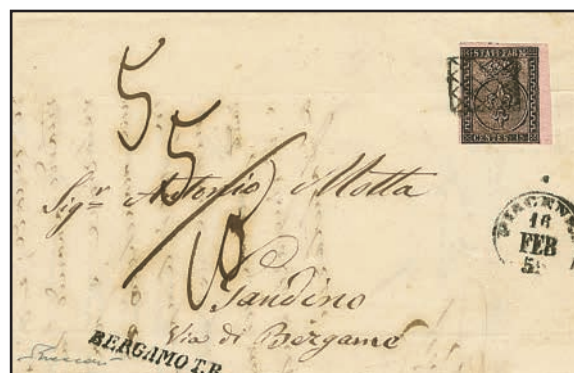 STATI PARM.
CENTES. 15
5
5
10
Sig.r Antonio Motta
PIACENZA
16
FEB
Gandino
Via di Bergamo
BERGAMO T.R.